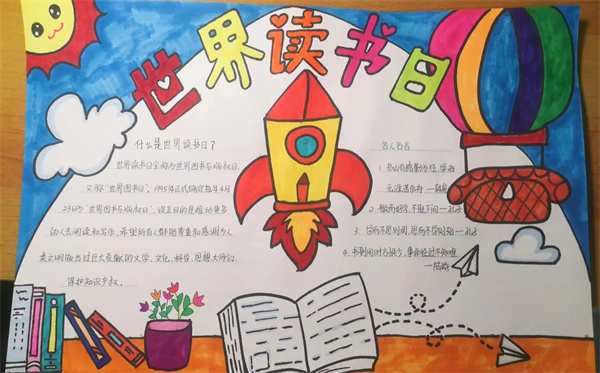 世界读书日
什么是世界读书日？
世界读书日全称为世界图书与版权日
又称"世界图书日"，1995年正式确定每年4月
23日为"世界图书与版权日"，设立目的是推动更多
的人去阅读和写作，希望所有人都能尊重和感谢为人
类文明做出过巨大贡献的文学、文化、科学、思想大师们，
保护知识产权。
名人名言
1、书山有路勤为径，学海
无涯苦作舟 —韩愈
2、敏而好学，不耻下问—孔子
3、学而不思则罔，思而不学则殆—孔子
4、书到用时方恨少，事非经过不知难
—陆游